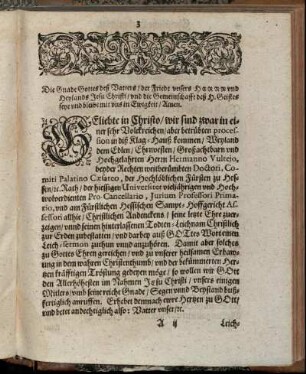 3
Die Gnade Gottes deß Vatters / der Friede unsers HERRN und
Heylands Jesu Christi / und die Gemeinschafft deß H. Geistes
sey und bleibe mit uns in Ewigkeit / Amen.
GEliebte in Christo / wir sind zwar in ei-
ner sehr Volckreichen / aber betrübten proces-
sion in deß Klag-Hauß kommen / Weyland
dem Edlen / Ehrnvesten / Großachtbarn und
Hochgelahrten Herrn Hermanno Vulteio,
beyder Rechten weitberühmbten Doctori, Co-
miti Palatino Cæsareo, der Hochlöblichen Fürsten zu Hes-
sen / rc. Rath / der hiesigen Universitet vieljährigen und Hoch-
wolverdienten Pro-Cancellario, Jurium Professori Prima-
rio, und am Fürstlichen Hessischen Sampt-Hoffgericht As-
sessori allhie / Christlichen Andenckens / seine letzte Ehr zuer-
zeigen / und seinen hinterlassenen Todten-Leichnam Christlich
zur Erden zubestatten / und darbey auß GOttes Wort einen
Leich-sermon zuthun und anzuhören. Damit aber solches
zu Gottes Ehren gereichen / und zu unser heilsamen Erbaw-
ung in dem wahren Christenthumb / und der bekümmerten Her-
tzen kräfftigen Tröstung gedeyen möge / so wollen wir GOtt
den Allerhöhesten im Nahmen Jesu Christi / unsers einigen
Mitlers / umb seine reiche Gnade / Segen und Beystand buß-
fertiglich anruffen. Erhebet demnach ewre Hertzen zu GOtt /
und betet andechtiglich also: Vatter unser / rc.
A ij
Leich-